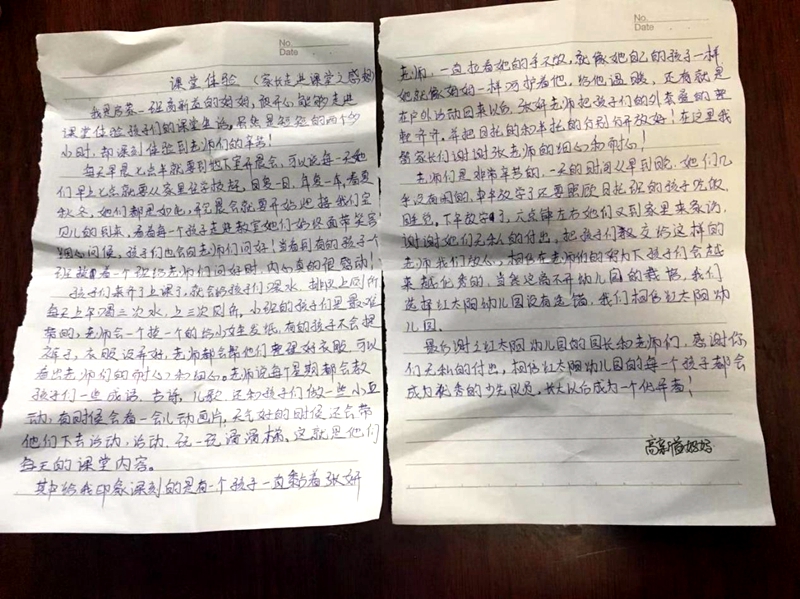 No.
Date
课堂体验 (家长走进课堂之感想)
我是启蒙一班高新苗的妈妈,很开心能够走进
课堂体验孩们的课堂生活,虽然是短短的两个多
小时,却深刻体验到老师们的辛苦!
每天早上七点半就要到地下室开晨会,可以说每一天她
们早上七点就要从家里往学校赶,日复一日,年复一年,春夏
秋冬,她们都是如此,晨会就要开始迎接我们宝
贝儿的到来,看着每个孩子走进教室她们始终面带笑容
细心问候,孩子们也会向老师们问好!当看到有的孩子一个
班级一个班级给老师们问好时,内心真的很感动!
孩子们来齐了上课了,就会给孩子们喂水,排队上厕所
每天上午喝三次水,上三次厕所,小班的孩子们是最难
带的,老师会一个挨一个的给小女生发纸,有的孩子不会提
裤子,衣服没弄好,老师都会帮他们整理好衣服,可以
看出老师们的耐心和细心。老师说每个星期都会教
孩子们一些成语,古诗,儿歌,还和孩子们做一些小互
动,有时候会看一会儿动画片,天气好的时候还会带
他们下去活动,活动,玩一玩滑滑梯,这就是他们
每天的课堂内容。
其中给我印象深刻的是有一个孩子一直黏着张妍
No.
Date
老师,一直拉着她的手不放,就像她自己的孩子一样
她就像妈妈一样呵护着他,给他温暖,还有就是
在户外活动回来以后,张妍老师把孩子们的外套叠的整
整齐齐,并把日托的和半托的分别分开放好!在这里我
替家长们谢谢张老师的细心和耐心!
老师们是非常辛苦的,一天的时间从早到晚,她们几
乎没有闲的,中午放学了还要照顾日托班的孩子吃饭,
睡觉,下午放学了,六点钟左右她们又到家里来家访,
谢谢她们无私的付出,把孩子们教交给这样的
老师我们放心,相信在老师们的努力下孩子们会越
来越优秀的,当然这离不开幼儿园的栽培,我们
选择红太阳幼儿园没有选错,我们相信红太阳幼
儿园。
最后谢谢红太阳幼儿园的园长和老师们,感谢你
们无私的付出,相信红太阳幼儿园的每一个孩子都会
成为优秀的少先队员,长大以后成为一个佼佼者!
高新苗妈妈